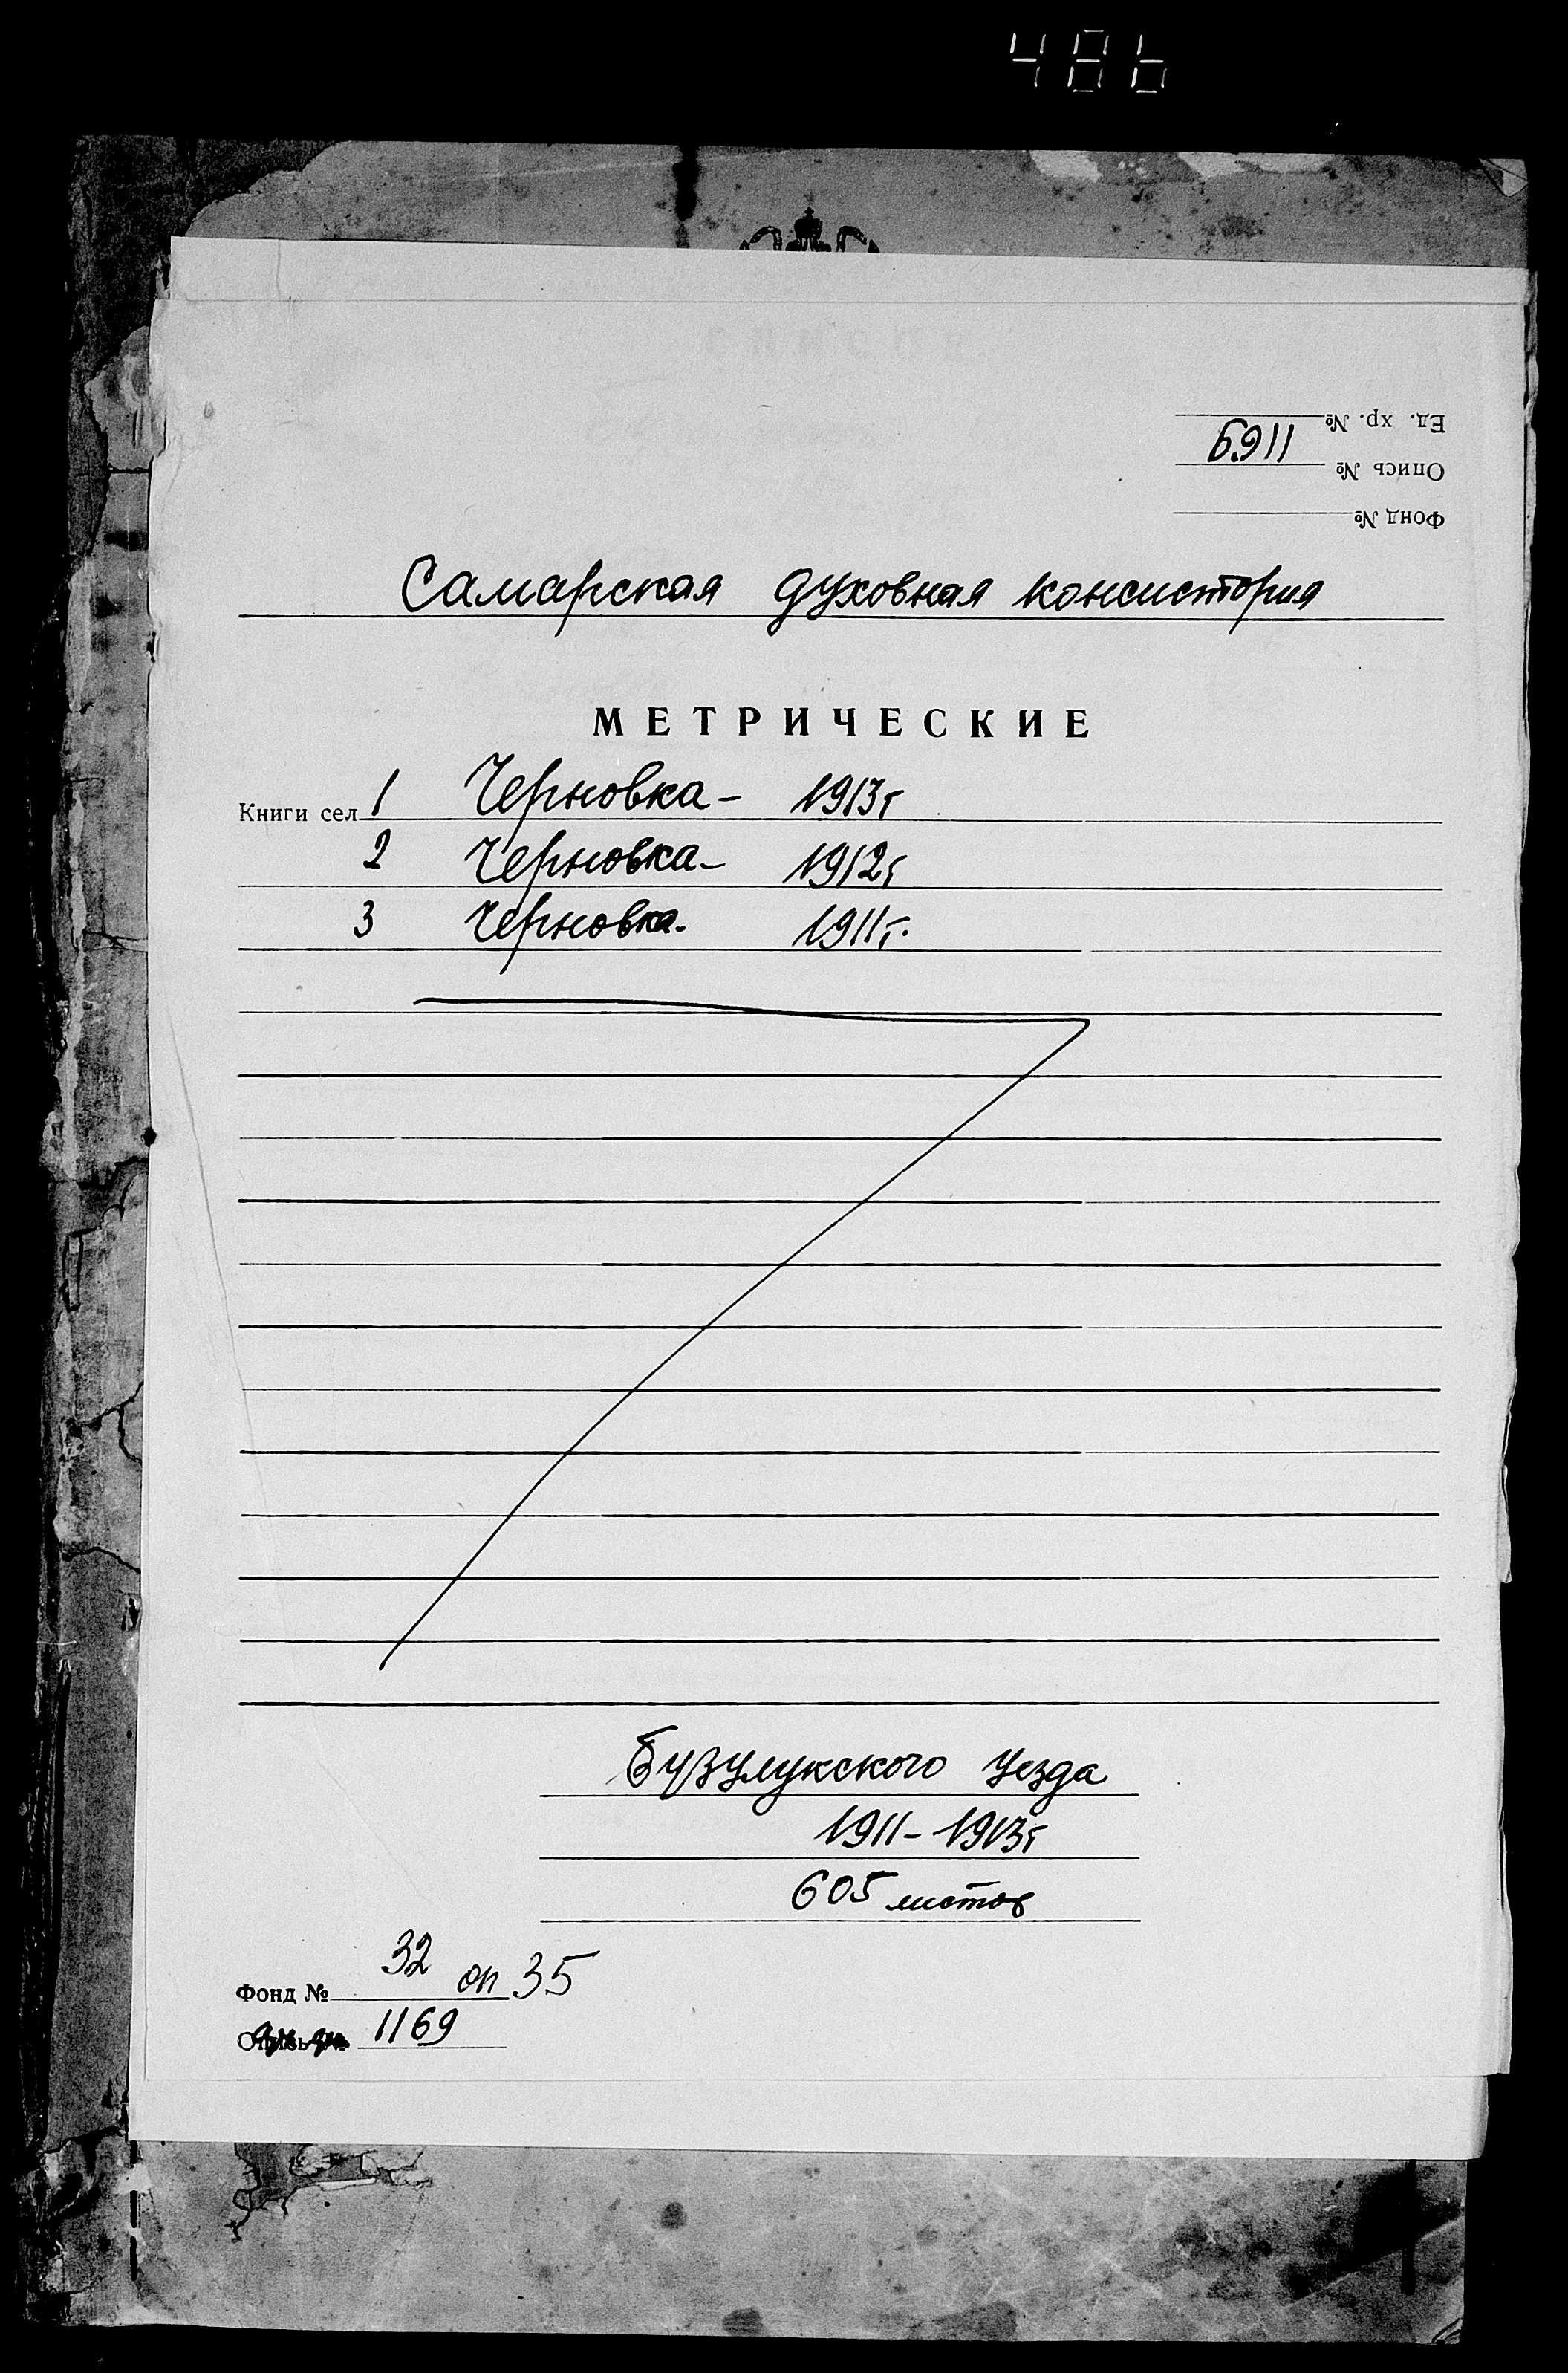 486
Ед. хр. №
Опись № 1169
Фонд №
Самарская духовная консистория
МЕТРИЧЕСКИЕ
Книги сел 1 Черновка - 1913г
2 Черновка - 1912г
3 Черновка. 1911г.
Бузулукского уезда
1911-1913г
605 листов
Фонд № 32 оп 35
1169